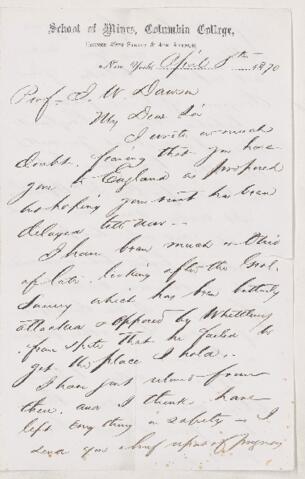 School of Mines, Columbia College,
Corner 49th Street & 4th Avenue,
New York, April 8th 1870
Prof. J. W. Dawson
My Dear Sir
I write in much
doubt, fearing that you have
gone to England as proposed
but hoping your visit has been
delayed till now—
I have been much in Ohio
of late, looking after the Geol.
Survey which has been bitterly
attacked & opposed by Whittlesey
from spite that he failed to
get the place I hold.
I have just returned from
there, and I think have
left every thing in safety— I
send you a brief report of progress